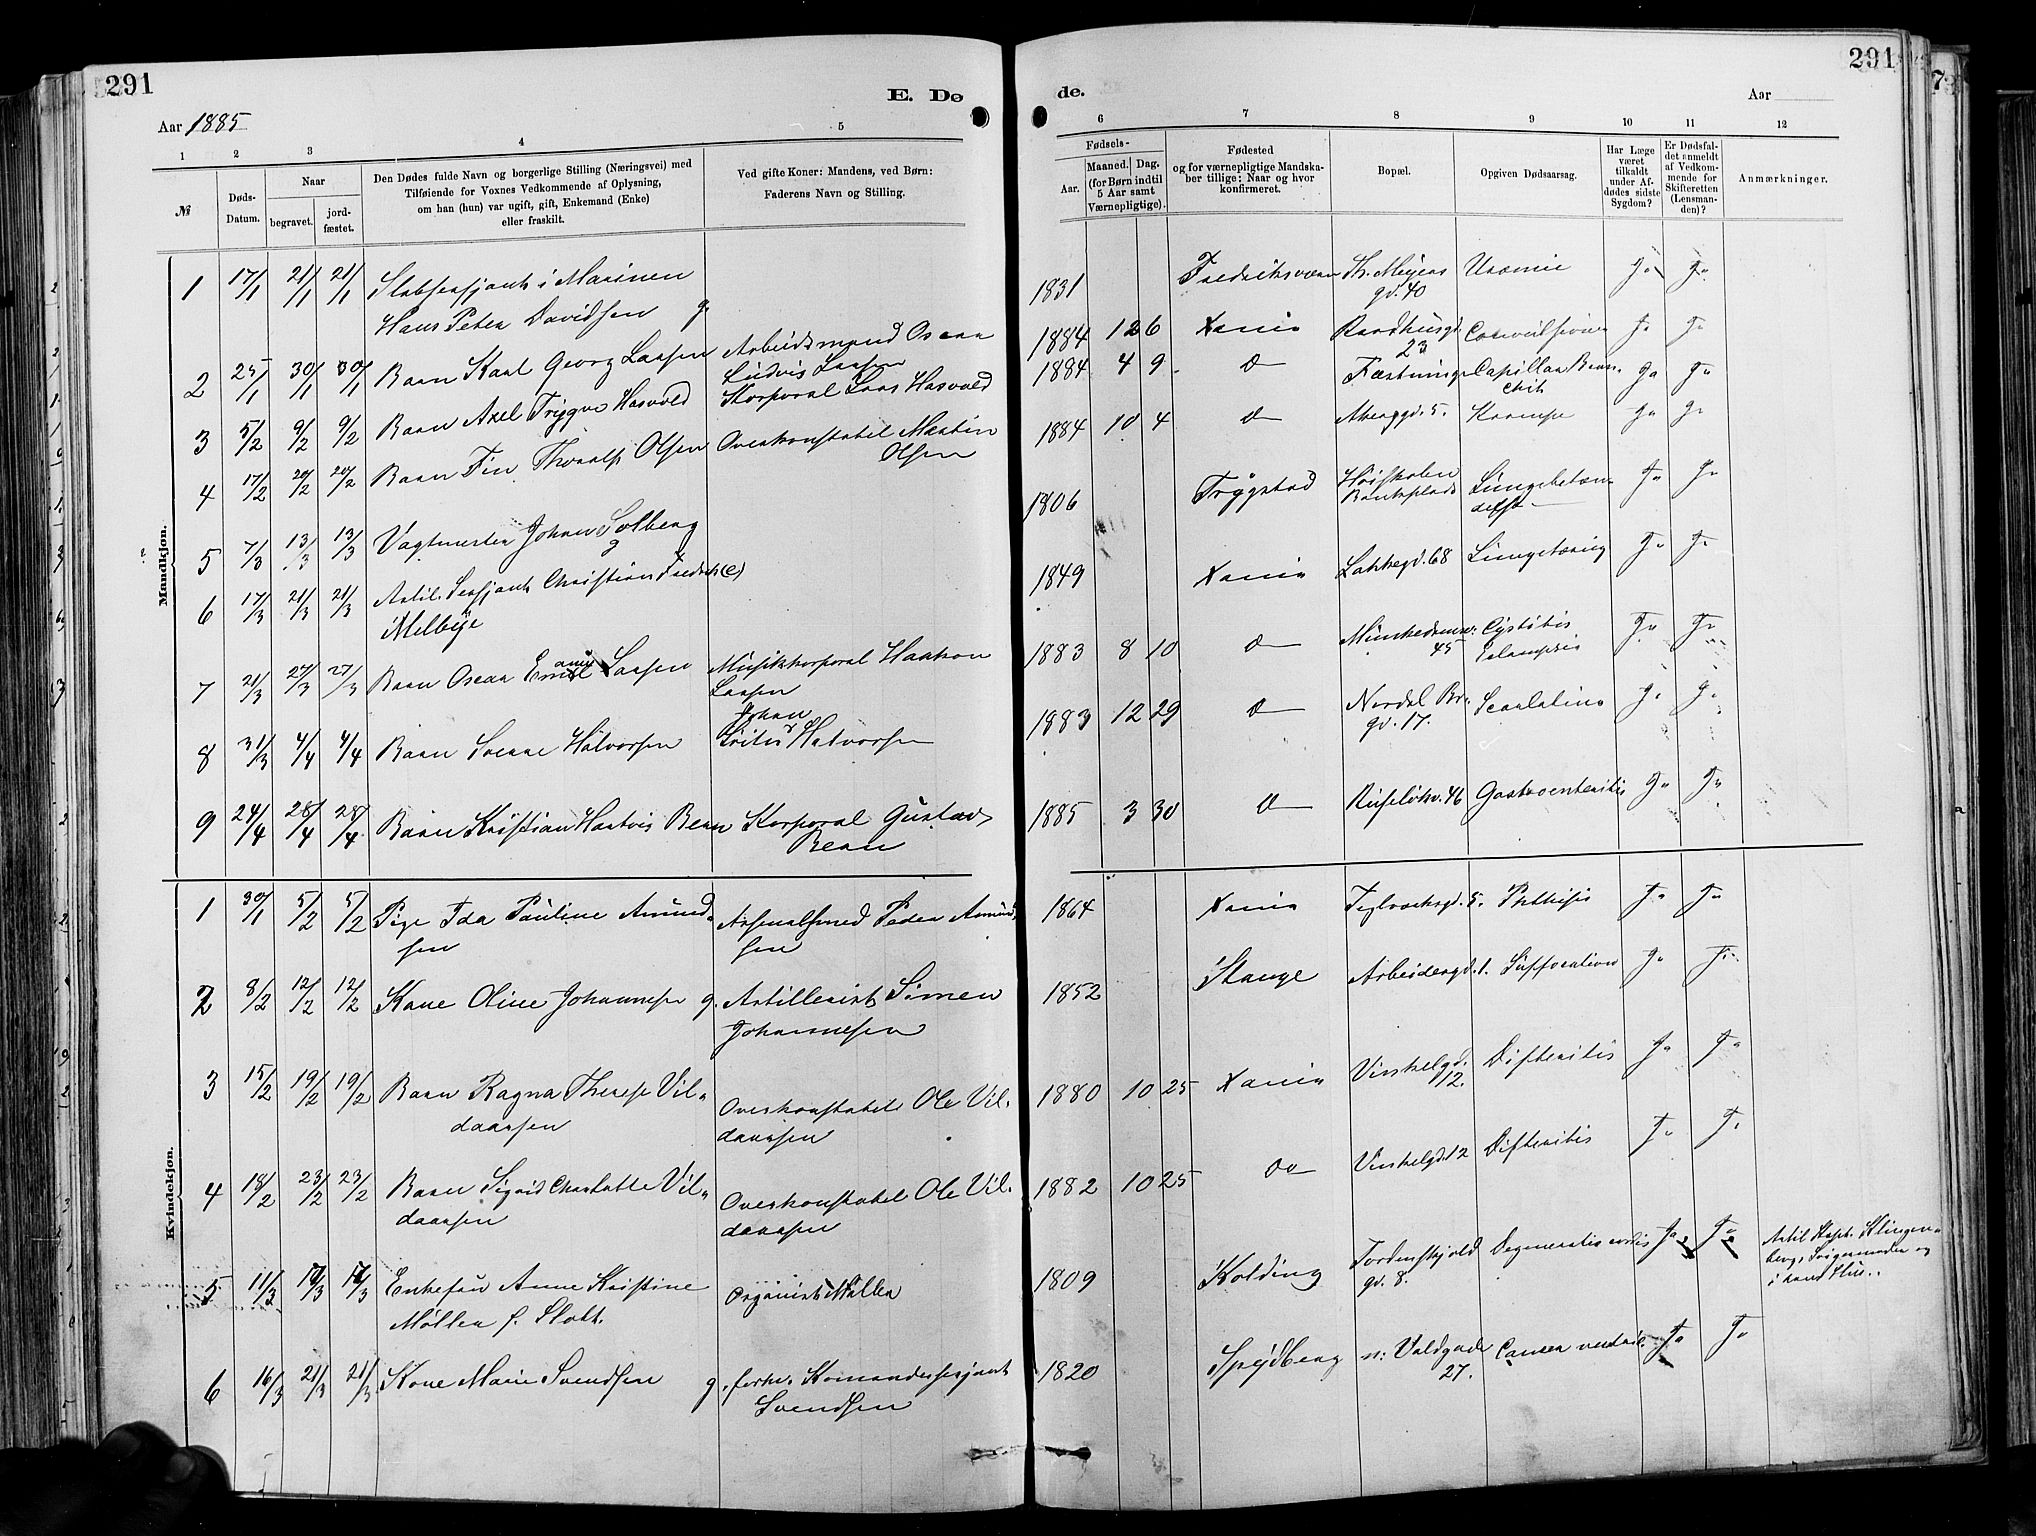 291
E. Dø
Aar 1885
1 2 3 4 5
№
Døds-
Datum.
Naar
begravet.
jord-
fæstet.
Den Dødes fulde Navn og borgerlige Stilling (Næringsvei) med
Tilføiende for Voxnes Vedkommende af Oplysning,
om han (hun) var ugift, gift, Enkemand (Enke)
eller fraskilt.
Ved gifte Koner: Mandens, ved Børn:
Faderens Navn og Stilling.
Mandkjøn.
1 17/1 21/1 21/1 Stabsersjant i Marinen
Hans Peter Davidsen g.
2 25/1 30/1 30/1 Barn Karl Georg Larsen Arbeidsmand Oscar
Ludvig Larsen
3 5/2 9/2 9/2 Barn Axel Trygve Hasvold Korporal Lars Hasvold
4 17/2 20/2 20/2 Barn Fin Thoralf Olsen Overkonstabel Martin
Olsen
5 7/3 13/3 13/3 Vagtmester Johan Solberg
g
6 17/3 21/3 21/3 Artil. Sersjant Christian Fredrik (e)
Melbye
7 21/3 27/3 27/3 Barn Oscar Larsen Musikkorporal Haakon
Larsen
8 31/3 4/4 4/4 Barn Sverre Halvorsen Johan
Halvorsen
9 24/4 28/4 28/4 Barn Kristian Hartvig Bern Korporal Gustav
Bern
Kvindekjøn.
1 30/1 5/2 5/2 Pige Ida Pauline Amund-
sen Arsenalsmed Peder Amund
sen
2 8/2 12/2 12/2 Kone Oline Johannesen g. Artillerist Simen
Johannesen
3 15/2 19/2 19/2 Barn Ragna Therese Vil-
daasen Overkonstabel Ole Vil-
daasen
4 18/2 23/2 23/2 Barn Sigrid Charlotte Vil-
daasen Overkonstabel Ole Vil-
daasen
5 11/3 17/3 17/3 Enkefru Anne Kristine
Møller f. Slott. Organist Møller
6 16/3 21/3 21/3 Kone Marie Svendsen g. forhv. Komandersersjant
Svendsen
291
de.
Aar
6 7 8 9 10 11 12
Fødsels-
Aar.
Maaned. Dag.
(for Børn indtil
5 Aar samt
Værnepligtige).
Fødested
og for værnepligtige Mandska-
ber tillige: Naar og hvor
konfirmeret.
Bopæl.
Opgiven Dødsaarsag.
Har Læge
været
tilkaldt
under Af-
dødes sidste
Sygdom?
Er Dødsfal-
det anmeldt
af Vedkom-
mende for
Skifteretten
(Lensman-
den)?
Anmærkninger.
1831 Fredriksværn Th. Meyers
gd. 40 Uræmie Ja Ja
1884 12 6 Xania Raadhusgd.
23 Convulsioner Ja Ja
1884 4 9 Do Fæstninge Capillær Bron-
chit Ja Ja
1884 10 4 Do Akersgd. 5. Krampe Ja Ja
1806 Trygstad Høiskolen
Bankplads Lungebetæn-
delse Ja Ja
1849 Xania Lakkegd. 68 Lungetæring Ja Ja
1883 8 10 Do Munkedamsv.
45 Cystitis
Eclampsia Ja Ja
1883 12 29 Do Nordal Br.
gd. 17. Scarlatina Ja Ja
1885 3 30 Do Ruseløkv. 46 Gastroenteritis Ja Ja
1864 Xania Teglverksgd. 5. Phthisis Ja Ja
1852 Stange Arbeidergd. 1. Suffocation Ja Ja
1880 10 25 Xania Vinkelgd.
12. Difteritis Ja Ja
1882 10 25 Do Vinkelgd. 12 Difteritis Ja Ja
1809 Kolding Tordenskjold
gd. 8. Degeneratio cordis Ja Ja Artil Kapt. Klingen-
bergs Svigermoder og
i hans Hus..
1820 Spydberg n: Voldgade
27. Cancer ventric. Ja Ja